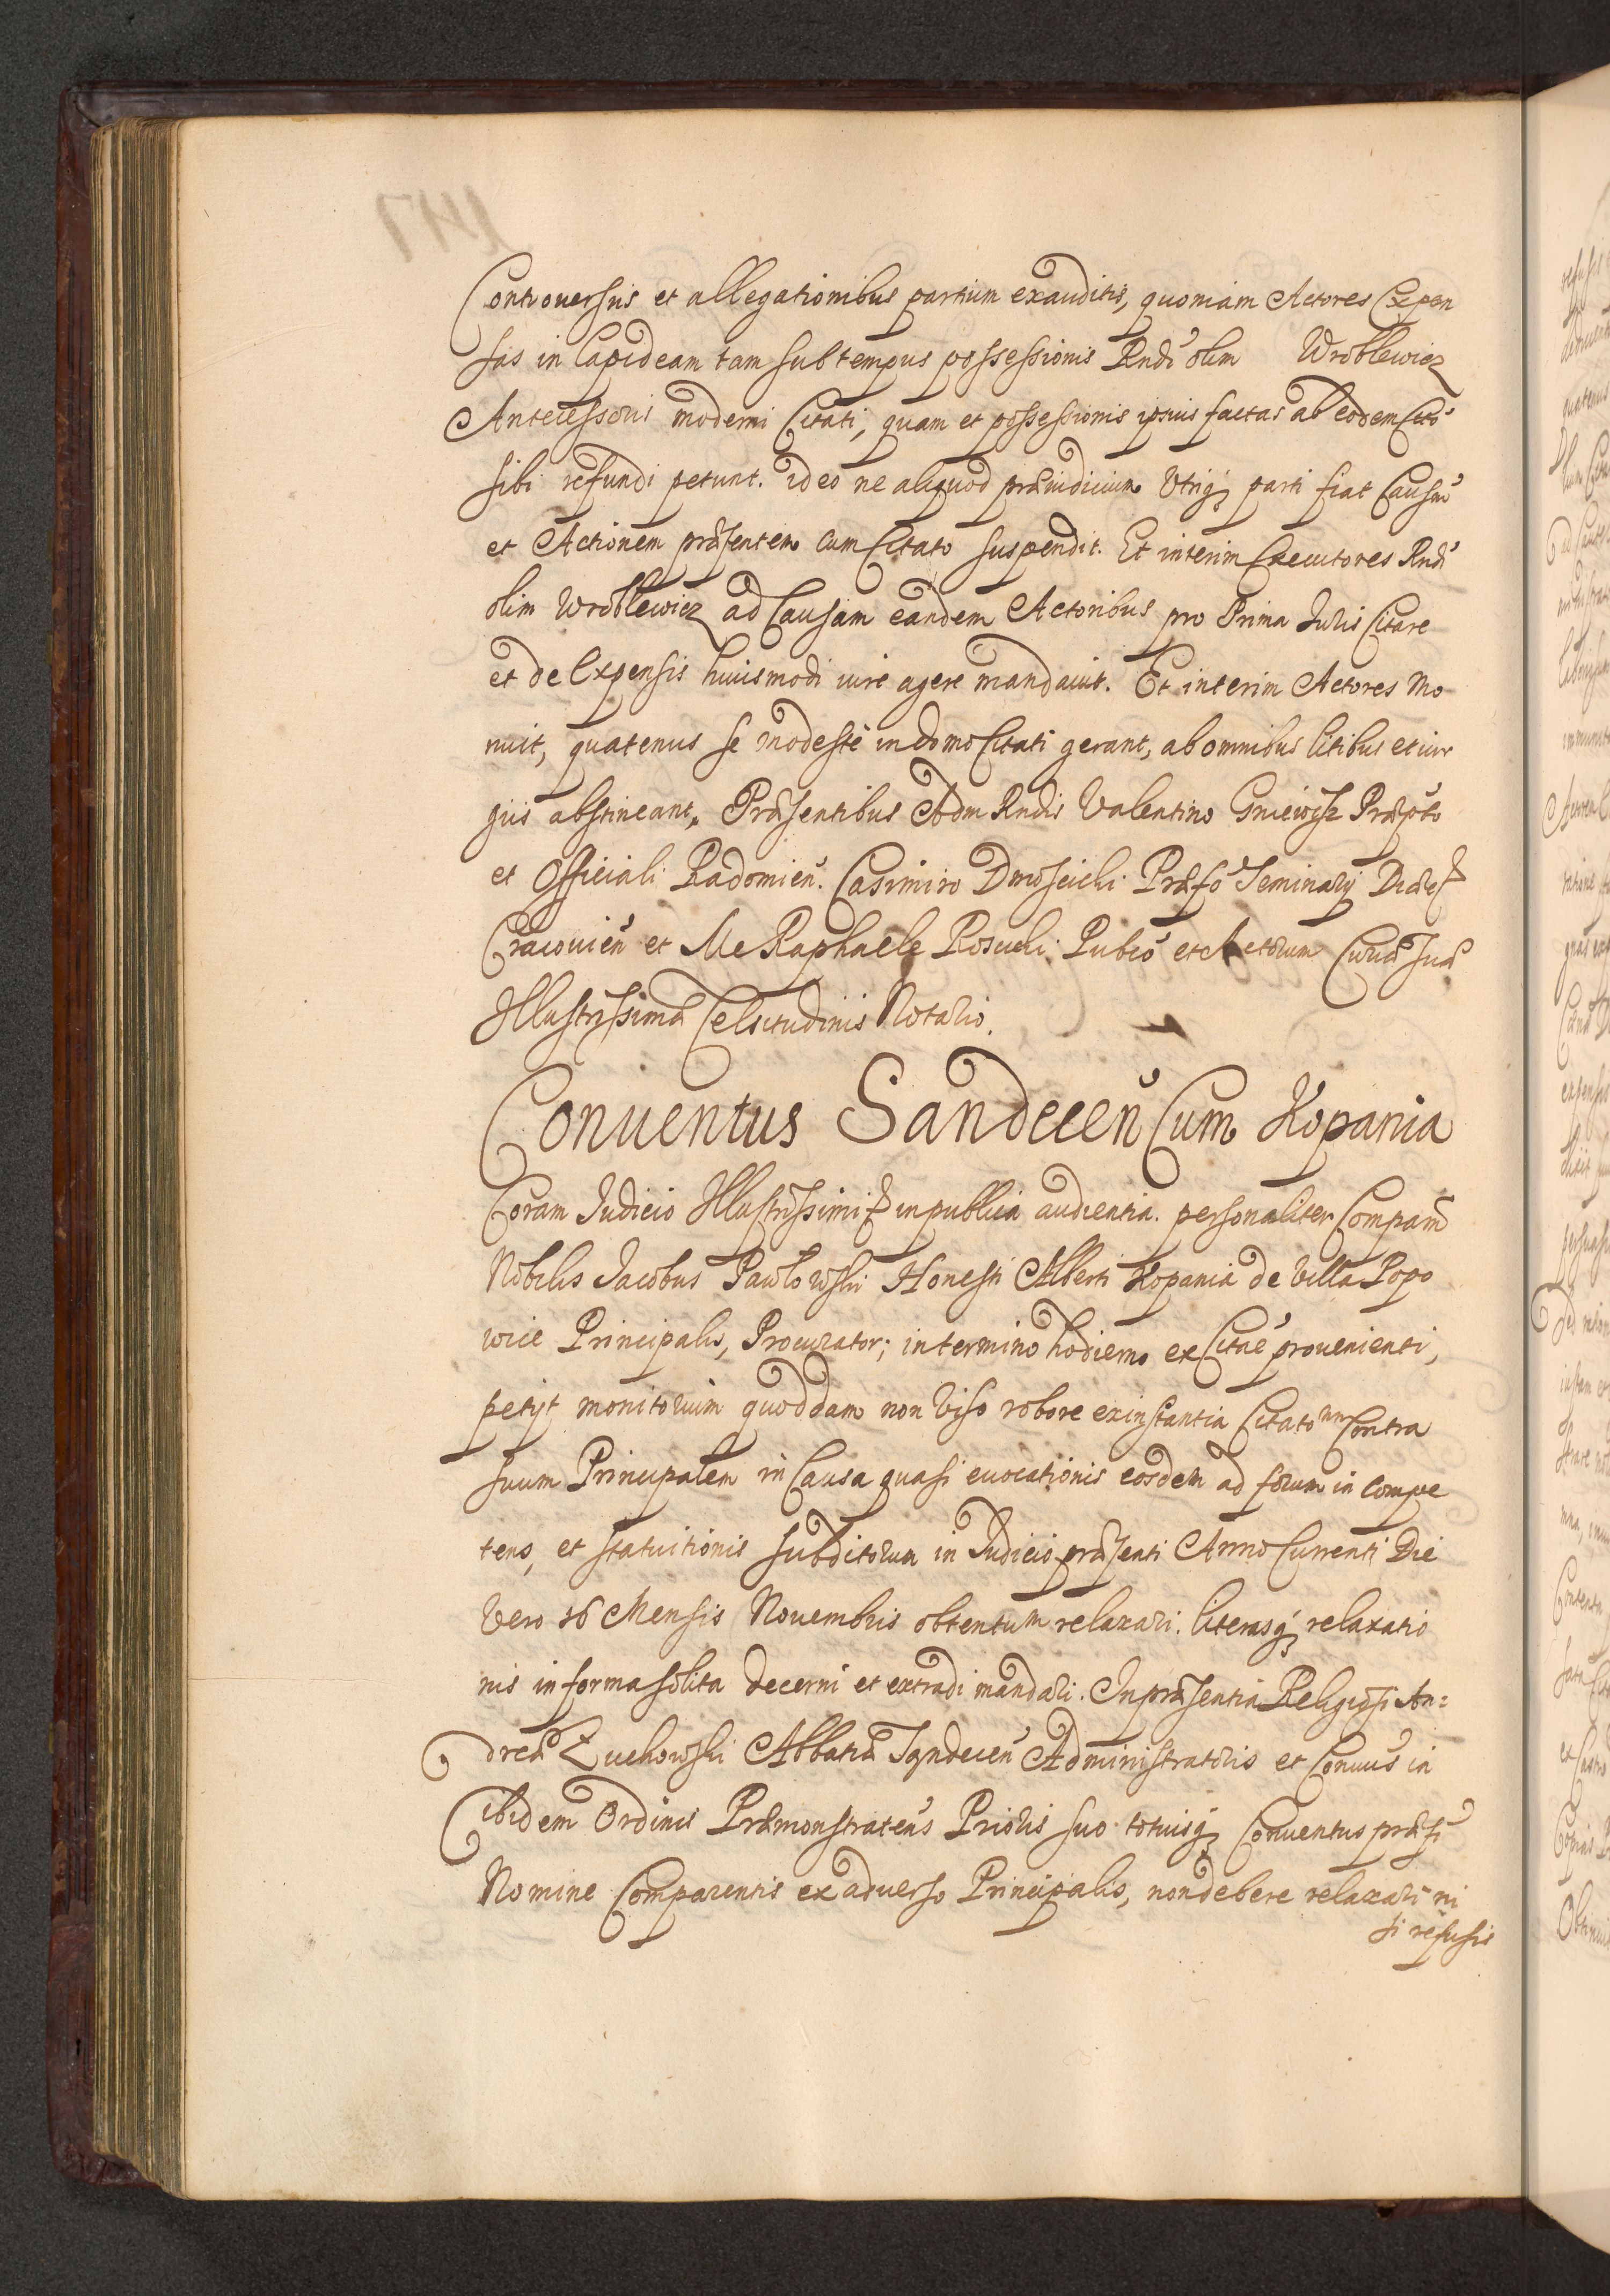 Controuersijs et allegationibus partium exauditis, quoniam Actores Expen
sas in Lapideam tam sub tempus possessionis Rndi olim Wroblewicz
Antecessoris moderni Citati, quam et possessionis ipsius factas ab eodem Citto
sibi refundi petunt. ideo ne aliquod præiudicium Utriq; parti fiat Causam
et Actionem præsentem cum Citato suspendit. Et interim Executores Rndi
olim Wroblewicz ad Causam eandem Actoribus pro Prima Iuris Citare
et de Expensis huiusmodi iure agere mandauit. Et interim Actores Mo
nuit, quatenus se modestè in domo Citati gerant, ab omnibus litibus et iur
gijs abstineant. Præsentibus Adm Rndis Valentino Gniewosz Præpto
et Officiali Radomien̄. Casimiro Dmoscicki Præfo Seminarij Diæces
Cracouien̄ et Me Raphaele Roscicki Publco et Actorum Curiæ Suæ
Illustrissimæ Celsitudinis Notario.
Conuentus Sandecen̄ Cum Kopania
Coram Iudicio Illustrissimi & in publica audientia personaliter Comparn̄
Nobilis Iacobus Pawlowski Honesti Alberti Kopania de Villa Popo
wice Principalis, Procurator; in termino hodierno ex Citne prouenienti,
petijt monitorium quoddam non viso robore ex instantia Citatorum Contra
suum Principalem in Causa quasi euocationis eosdem ad forum in compe
tens, et statuitionis subditorum in Iudicio præsenti Anno Currenti Die
Vero 16 Mensis Nouembris obtentum relaxari. literasq; relaxatio
nis in forma solita decerni et extradi mandari. In præsentia Religiosi An=
dreæ Zuchowski Abbatiæ Sandecen̄ Administratoris et Conuus in
ibidem Ordinis Præmonstraten̄s Prioris suo totiusq; Conuentus præfti
Nomine Comparentis ex aduerso Principalis, non debere relaxari ni
si refusis